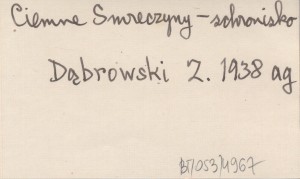 Ciemne Smreczyny – schronisko
Dąbrowski Z. 1938 ag
BT/053/4967